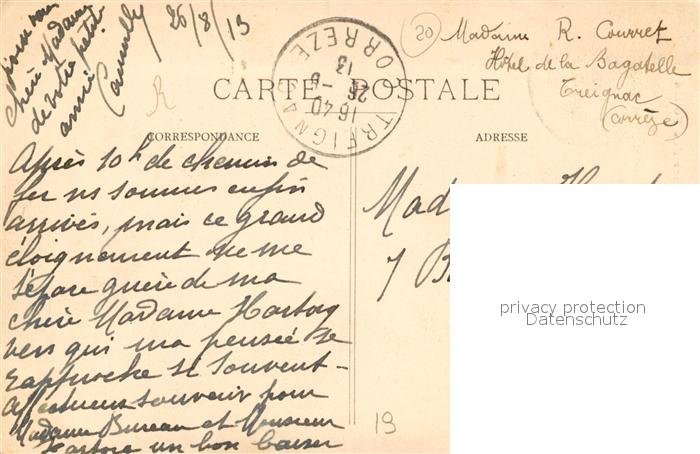 26/8/13
chère Madame
de votre petite
amie
Camille
TREIGNAC
CORREZE
16 40
26 - 8
13
20
Madame R. Courret
Hôtel de la Bagatelle
Treignac
(Corrèze)
R
CARTE POSTALE
CORRESPONDANCE
ADRESSE
Après 10h de chemin de
fer ns sommes enfin
arrivés, mais ce grand
éloignement ne me
sépare guère de ma
chère Madame Hartog
vers qui ma pensée se
rapproche si souvent -
affectueux souvenir pour
Madame Bureau et Monsieur
Hartog un bon baiser
Mad
7 B
19
privacy protection
Datenschutz